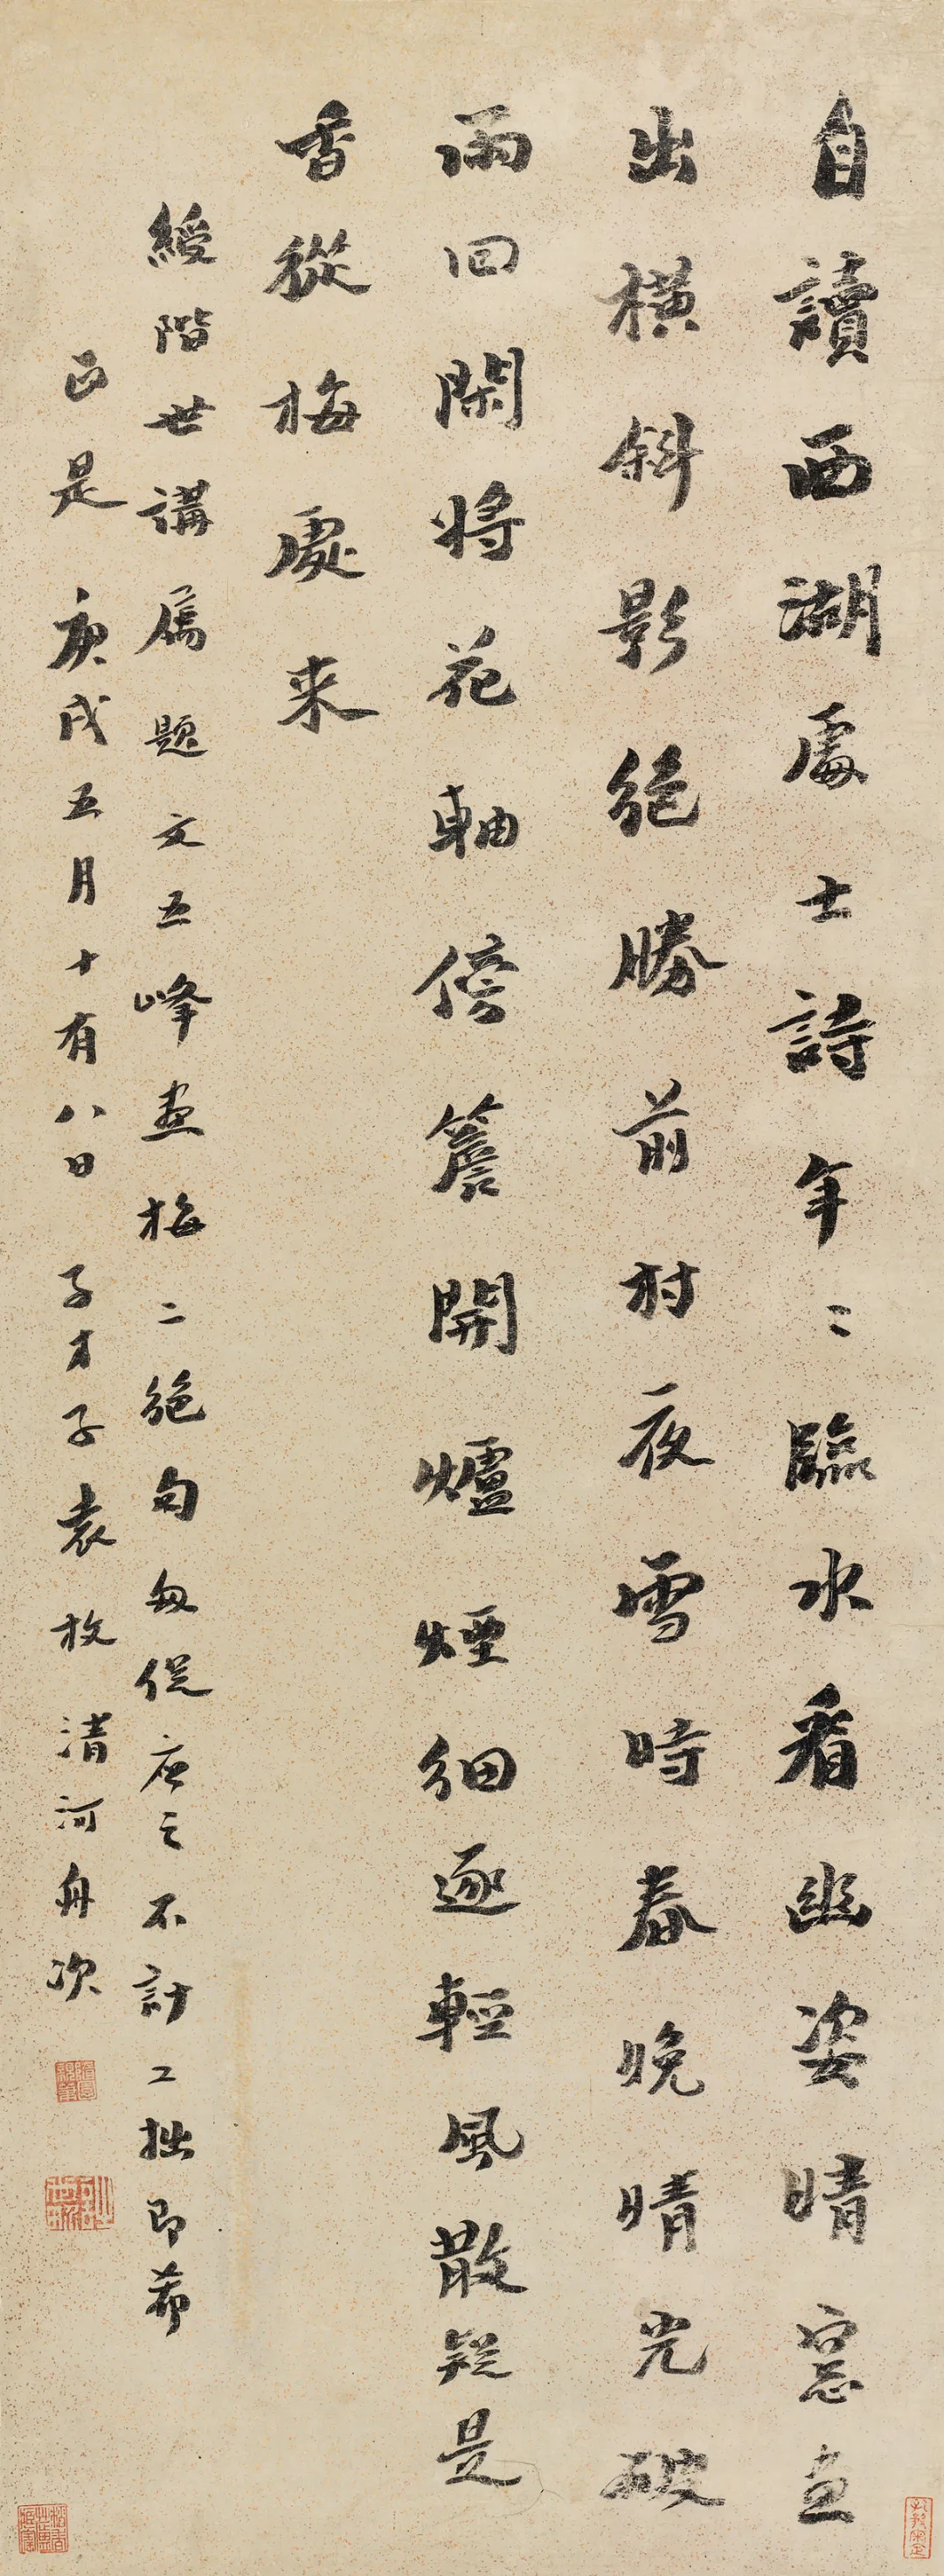 自讀西湖處士詩年〻臨水看幽姿晴窻畫
出橫斜影絕勝前村夜雪時春晚晴光破
雨回閑將花軸倚簷開爐煙細逐輕風散疑是
香從梅處來
綬階世講属題文五峰畫梅二絕句匆促應之不計工拙即希
正是庚戌五月十有八日子才子袁枚清河舟次